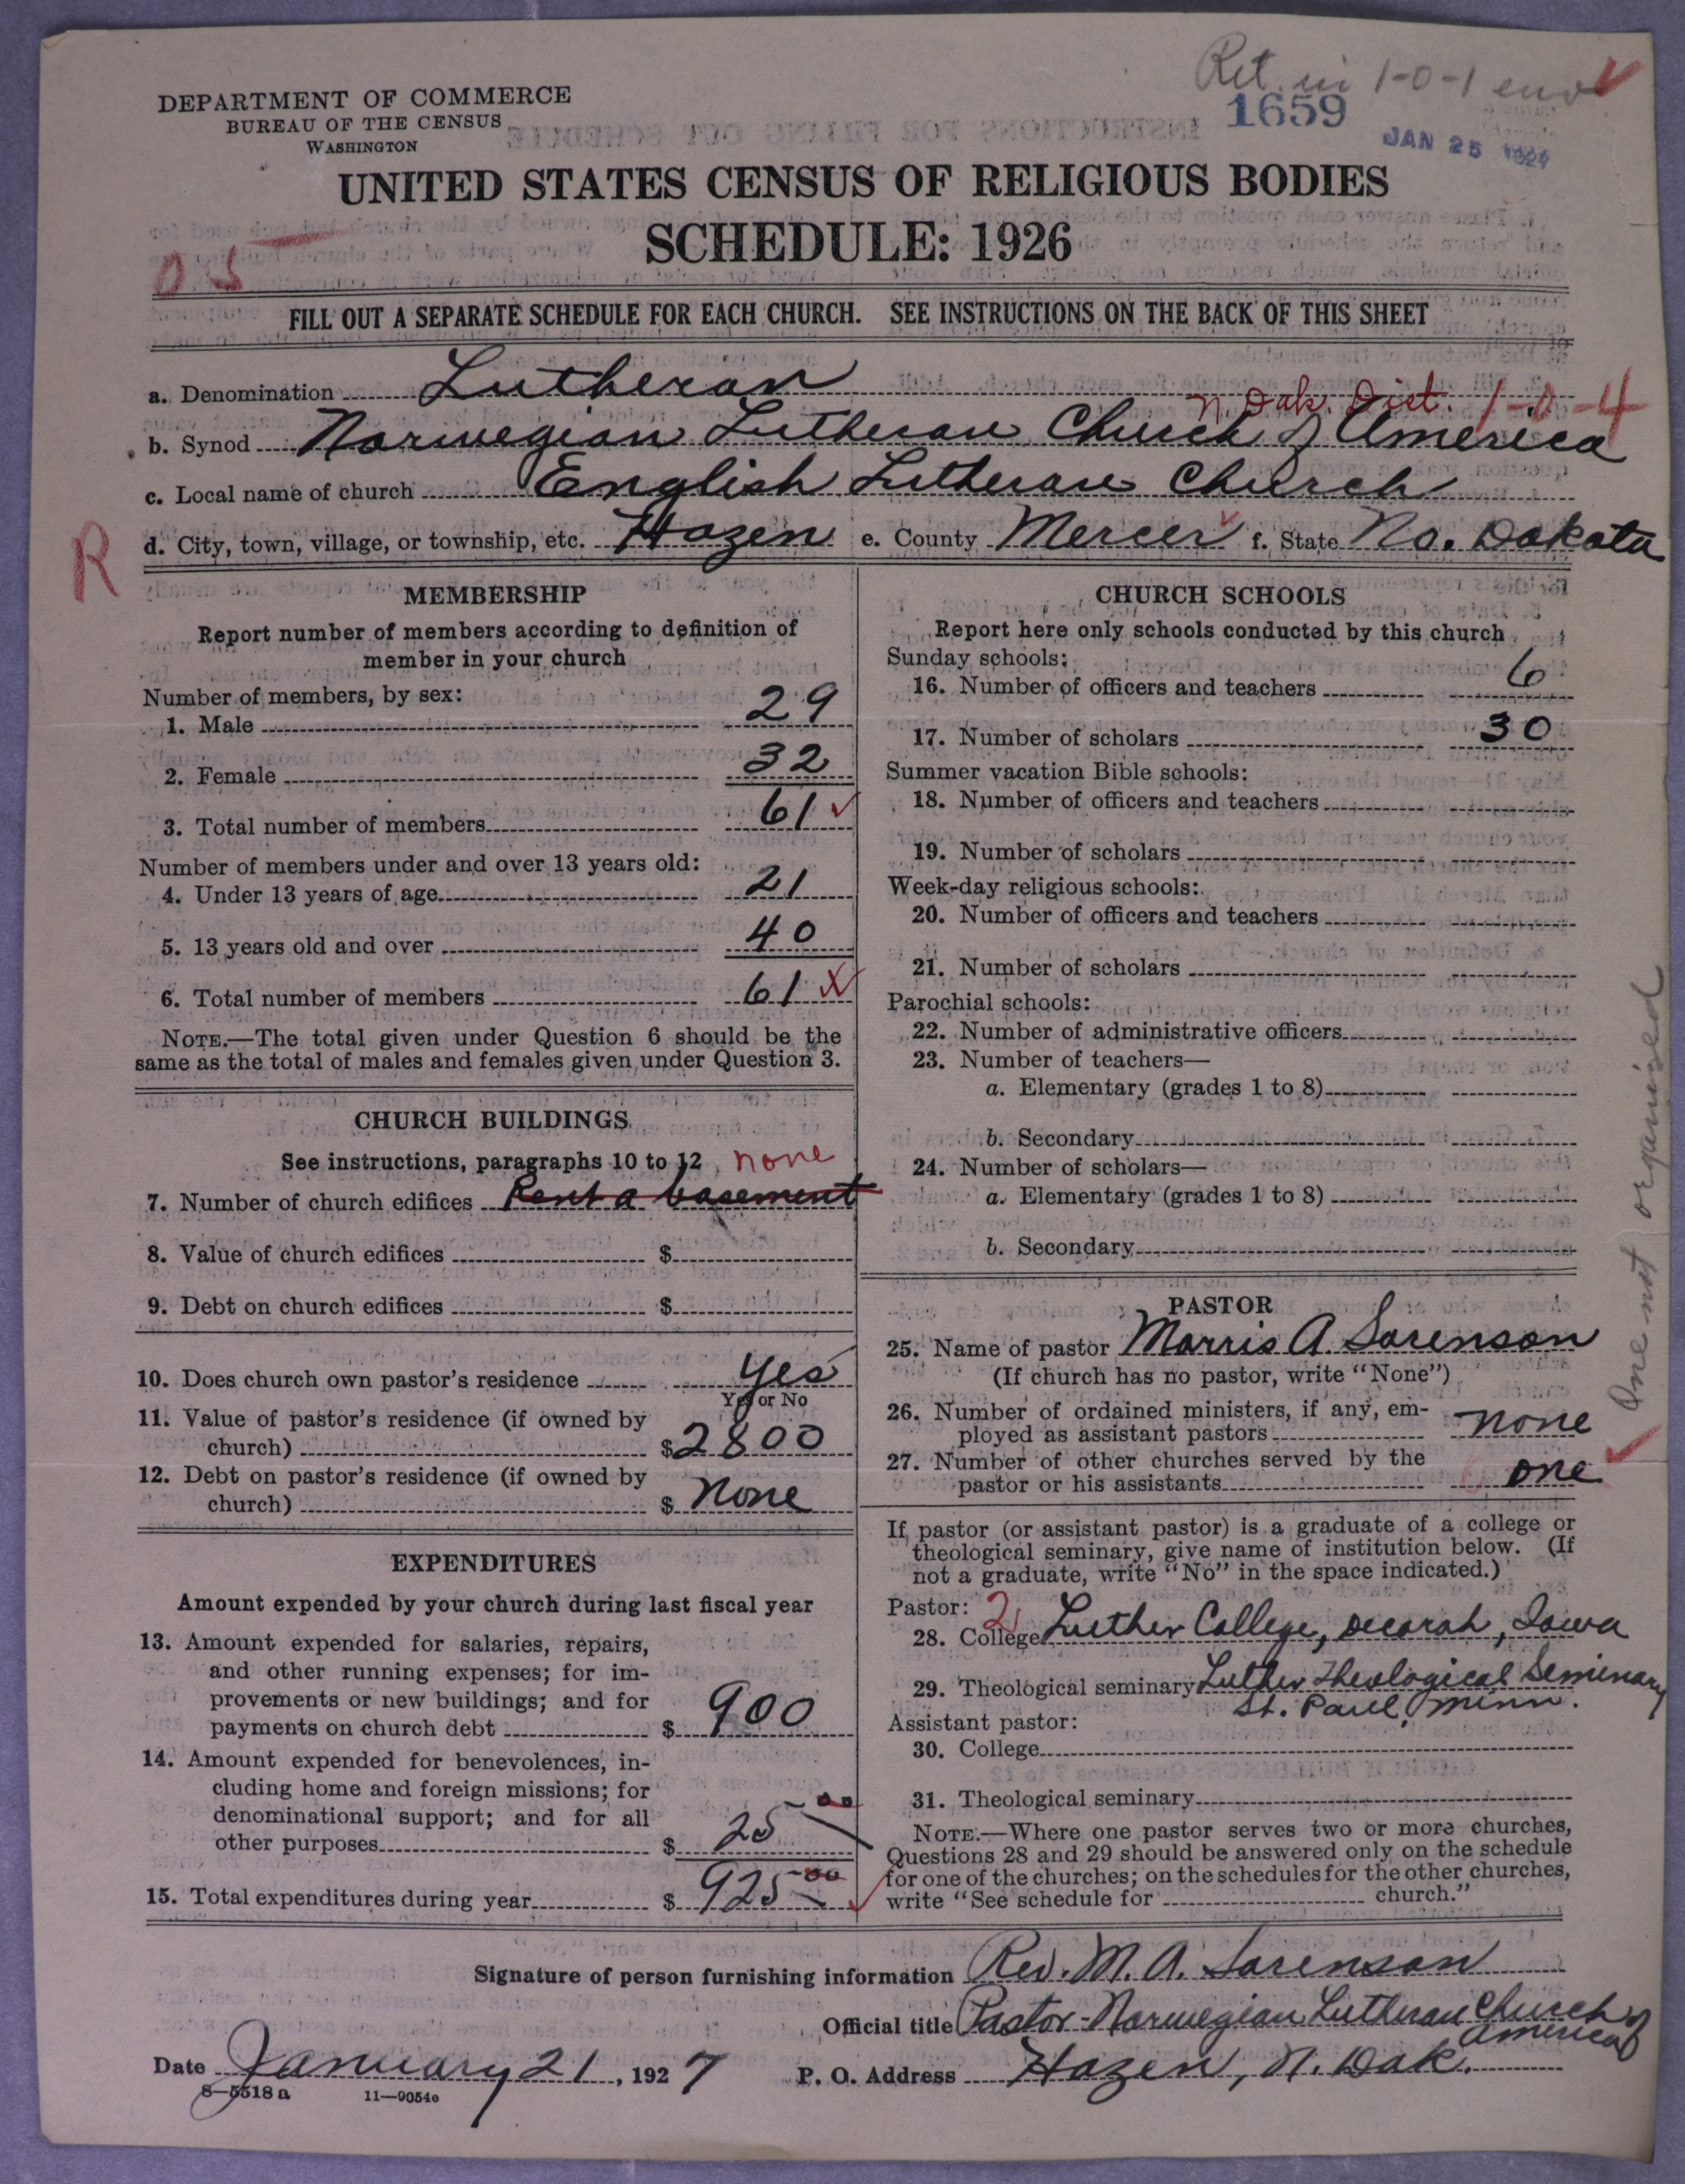 Ret. in 1-0-1 env
DEPARTMENT OF COMMERCE
BUREAU OF THE CENSUS
WASHINGTON
1659
JAN 25 1927
UNITED STATES CENSUS OF RELIGIOUS BODIES
SCHEDULE: 1926
O S
FILL OUT A SEPARATE SCHEDULE FOR EACH CHURCH. SEE INSTRUCTIONS ON THE BACK OF THIS SHEET
a. Denomination Lutheran
N. Dak. Dist. 1-0-4
b. Synod Norwegian Lutheran Church of America
c. Local name of church English Lutheran Church
R
d. City, town, village, or township, etc. Hazen e. County Mercer f. State No. Dakota
MEMBERSHIP
Report number of members according to definition of
member in your church
Number of members, by sex:
1. Male 29
2. Female 32
3. Total number of members 61
Number of members under and over 13 years old:
4. Under 13 years of age 21
5. 13 years old and over 40
6. Total number of members 61
NOTE.—The total given under Question 6 should be the
same as the total of males and females given under Question 3.
CHURCH BUILDINGS
See instructions, paragraphs 10 to 12 none
7. Number of church edifices Rent a basement
8. Value of church edifices $
9. Debt on church edifices $
10. Does church own pastor's residence Yes
Yes or No
11. Value of pastor's residence (if owned by
church) $2800
12. Debt on pastor's residence (if owned by
church) $ None
EXPENDITURES
Amount expended by your church during last fiscal year
13. Amount expended for salaries, repairs,
and other running expenses; for im-
provements or new buildings; and for
payments on church debt $ 900
14. Amount expended for benevolences, in-
cluding home and foreign missions; for
denominational support; and for all
other purposes $ 25 00
15. Total expenditures during year $ 925 00
CHURCH SCHOOLS
Report here only schools conducted by this church
Sunday schools:
16. Number of officers and teachers 6
17. Number of scholars 30
Summer vacation Bible schools:
18. Number of officers and teachers
19. Number of scholars
Week-day religious schools:
20. Number of officers and teachers
21. Number of scholars
Parochial schools:
22. Number of administrative officers
23. Number of teachers—
a. Elementary (grades 1 to 8)
b. Secondary
24. Number of scholars—
a. Elementary (grades 1 to 8)
b. Secondary
PASTOR
25. Name of pastor Morris A. Sorenson
(If church has no pastor, write "None")
26. Number of ordained ministers, if any, em-
ployed as assistant pastors none
27. Number of other churches served by the
pastor or his assistants one
One not organised
If pastor (or assistant pastor) is a graduate of a college or
theological seminary, give name of institution below. (If
not a graduate, write "No" in the space indicated.)
Pastor: 2
28. College Luther College, Decorah, Iowa
29. Theological seminary Luther Theological Seminary
St. Paul, Minn.
Assistant pastor:
30. College
31. Theological seminary
NOTE.—Where one pastor serves two or more churches,
Questions 28 and 29 should be answered only on the schedule
for one of the churches; on the schedules for the other churches,
write "See schedule for church."
Signature of person furnishing information Rev. M. A. Sorenson
Official title Pastor - Norwegian Lutheran Church of
America
Date January 21, 1927 P. O. Address Hazen, N. Dak.
8—5518 a 11—9054c